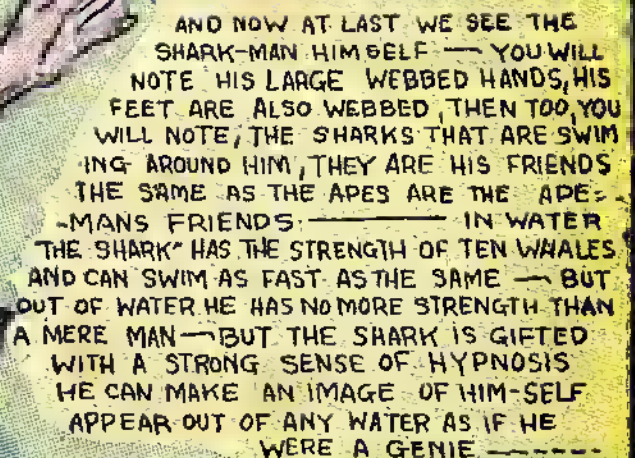 AND NOW AT LAST WE SEE THE
SHARK-MAN HIMSELF — YOU WILL
NOTE HIS LARGE WEBBED HANDS, HIS
FEET ARE ALSO WEBBED, THEN TOO, YOU
WILL NOTE, THE SHARKS THAT ARE SWIM
-ING AROUND HIM, THEY ARE HIS FRIENDS
THE SAME AS THE APES ARE THE APE-
-MANS FRIENDS. ——— IN WATER
THE SHARK" HAS THE STRENGTH OF TEN WHALES
AND CAN SWIM AS FAST AS THE SAME — BUT
OUT OF WATER HE HAS NO MORE STRENGTH THAN
A MERE MAN — BUT THE SHARK IS GIFTED
WITH A STRONG SENSE OF HYPNOSIS
HE CAN MAKE AN IMAGE OF HIM-SELF
APPEAR OUT OF ANY WATER AS IF HE
WERE A GENIE ------